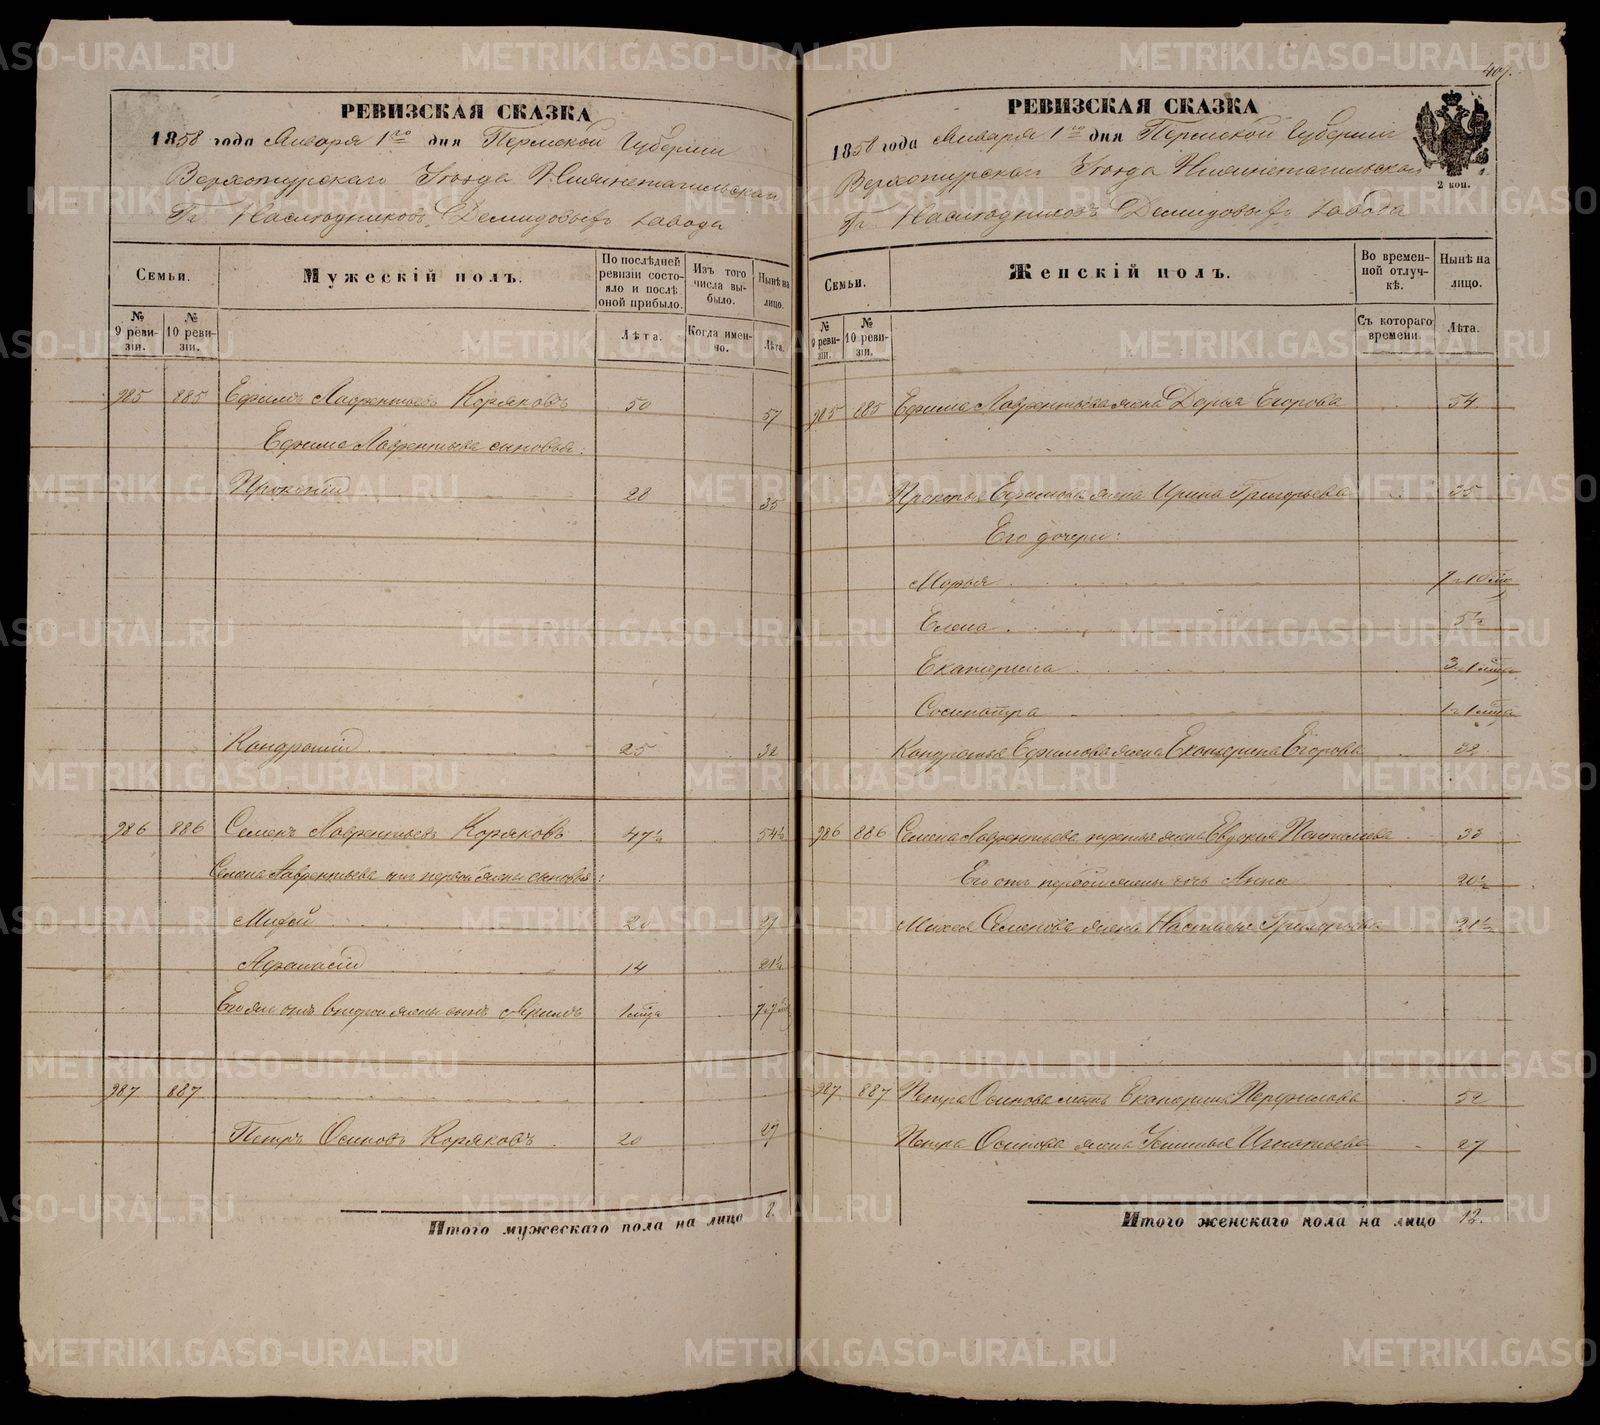 407.
РЕВИЗСКАЯ СКАЗКА
1858 года Января 1го дня Пермской Губернии
Верхотурскаго Уѣзда Нижнетагильскаго
Гг. Наслѣдниковъ Демидовыхъ завода
Семьи.
Мужескій полъ.
По послѣдней ревизіи состояло и послѣ оной прибыло.
Изъ того числа выбыло.
Нынѣ на лицо.
№ 9 ревизіи.
№ 10 ревизіи.
Лѣта.
Когда именно.
Лѣта.
985 885 Ефимъ Лаврентьевъ Коряковъ 50 57
Ефима Лаврентьева сыновья:
Прокопій 28 35
Кондратій 25 32
986 886 Семенъ Лаврентьевъ Коряковъ 47½ 54½
Семена Лаврентьева отъ первой жены сыновья:
Михей 20 27
Афанасій 14 21½
Его же отъ второй жены сынъ 1 мѣсяца
987 887
Петръ Осиповъ Коряковъ 20 27
Итого мужескаго пола на лицо 8.
РЕВИЗСКАЯ СКАЗКА
1858 года Января 1го дня Пермской Губерніи
Верхотурскаго Уѣзда Нижнетагильскаго
Гг. Наслѣдниковъ Демидовыхъ завода
2 коп.
Семьи.
Женскій полъ.
Во временной отлучкѣ.
Нынѣ на лицо.
№ 9 ревизіи.
№ 10 ревизіи.
Съ котораго времени.
Лѣта.
985 885 Ефима Лаврентьева жена Дарья Егорова 54
Прокопья Ефимова жена Ирина Григорьева 35
Его дочери:
Марья
Елена 5½
Екатерина 3 и 1 мѣсяца
Сосипатра 1 и 1 мѣсяца
Кондратья Ефимова жена Екатерина Егорова 32
986 886 Семена Лаврентьева третья жена Евдокия 33
Его отъ первой жены дочь Анна 20½
Михея Семенова жена Настасья Григорьева 21½
987 887 Петра Осипова мать Екатерина Перфилова 52
Петра Осипова жена Устинья Игнатьева 27
Итого женскаго пола на лицо 12.
METRIKI.GASO-URAL.RU